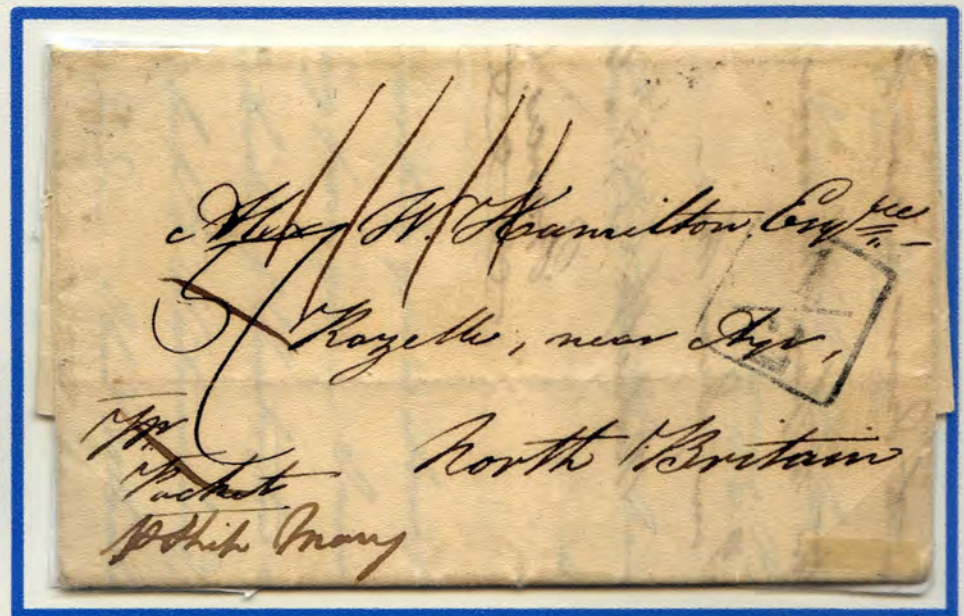 Alexr W. Hamilton Esqre
Rozelle, near Ayr,
North Britain
Pr.
Packet
p Ship Mary
1/2